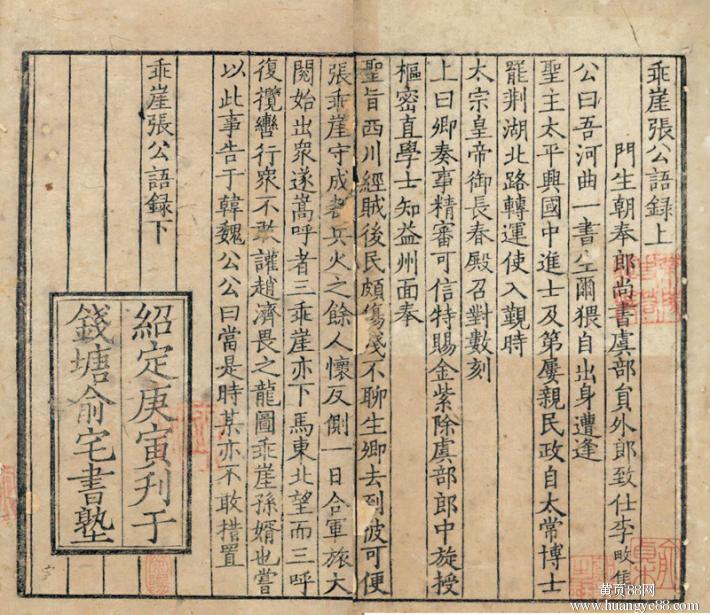 乖崖張公語録上
門生朝奉郎尚書虞部負外郎致仕李畋集
公曰吾河曲一書生爾猥自出身遭逢
聖主太平興國中進士及第屢親民政自太常博士
罷荆湖北路轉運使入覲時
太宗皇帝御長春殿召對數刻
上曰卿奏事精審可信特賜金紫除虞部郎中旋授
樞密直學士知益州面奉
聖旨西川經賊後民頗傷殘不聊生卿去到彼可便
張乖崖守成都兵火之餘人懷反側一日合軍旅大
閱始出衆遂嵩呼者三乖崖亦下馬東北望而三呼
復攬轡行衆不敢讙趙濟畏之龍圖乖崖孫婿也嘗
以此事告于韓魏公公曰當是時某亦不敢措置
乖崖張公語録下
紹定庚寅刋于
錢塘俞宅書塾
黄页88网
www.huangye88.com